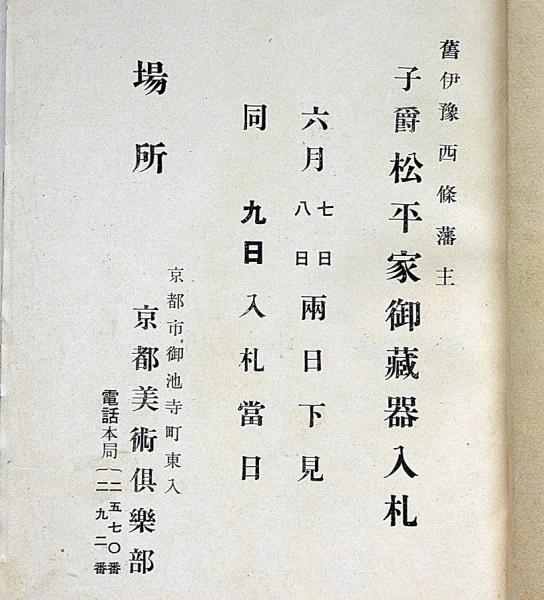 舊伊豫西條藩主
子爵松平家御藏器入札
六月七日八日兩日下見
同九日入札當日
場所
京都市御池寺町東入
京都美術倶樂部
電話本局(二五七〇番
二九二番